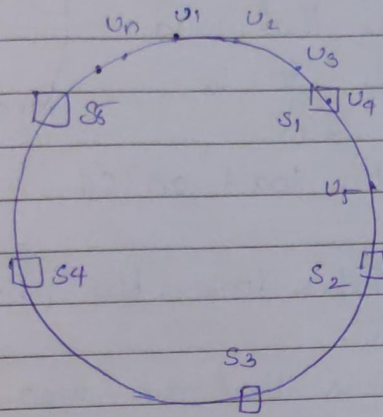 Un U1 U2
U3
S5 S1 U4
U5
S4 S2
S3